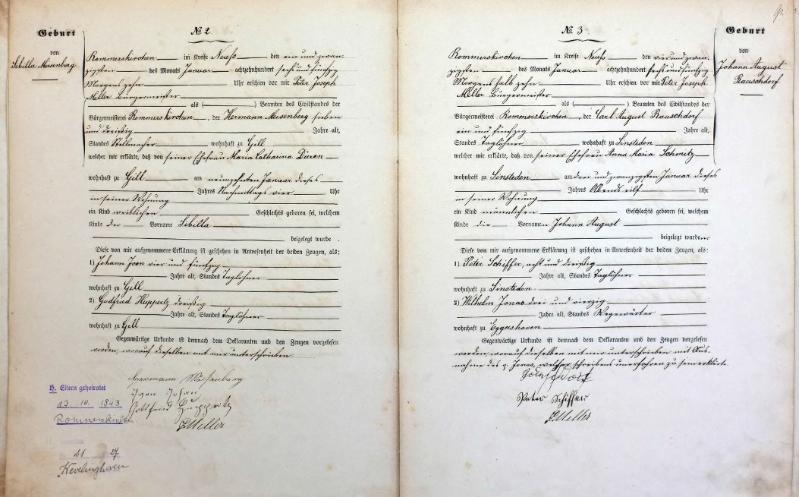 № 2
Geburt
von
Sibilla Meisenberg
Rommerskirchen im Kreise Neuß den ein und zwan-
zigsten des Monats Januar achtzehnhundert sechs und fünfzig
Morgens zehn Uhr erschien vor mir Peter Joseph
Miller Bürgermeister
als ( ) Beamten des Civilstandes der
Bürgermeisterei Rommerskirchen, der Hermann Meisenberg sieben
und dreißig Jahre alt,
Standes wohnhaft zu Gill
welcher mir erklärte, daß von seiner Ehefrau Maria Catharina Düren
wohnhaft zu Gill am neunzehnten Januar dieses
Jahres Nachmittags vier Uhr
in seiner Wohnung
ein Kind weiblichen Geschlechts geboren sei, welchem
Kinde der Vorname Sibilla
beigelegt wurde.
Diese von mir aufgenommene Erklärung ist geschehen in Anwesenheit der beiden Zeugen, als:
1) Johann vier und fünfzig
Jahre alt, Standes Taglöhner
wohnhaft zu Gill
2) Godfried Hupperts dreißig
Jahre alt, Standes Taglöhner
wohnhaft zu Gill
Gegenwärtige Urkunde ist demnach dem Deklaranten und den Zeugen vorgelesen
worden, worauf dieselben mit mir unterschrieben
Hermann
Gottfried Hupperts
Miller
H. Eltern geheiratet
1843
Rommerskirchen
Nevelinghoven
№ 3
Geburt
von
Johann August
Rauschdorf
Rommerskirchen im Kreise Neuß den vier und zwan-
zigsten des Monats Januar achtzehnhundert sechs und fünfzig
Morgens halb zehn Uhr erschien vor mir Peter Joseph
Miller Bürgermeister
als ( ) Beamten des Civilstandes der
Bürgermeisterei Rommerskirchen, der Carl August Rauschdorf
ein und fünfzig Jahre alt,
Standes Taglöhner wohnhaft zu Sinsteden
welcher mir erklärte, daß von seiner Ehefrau Anna Maria Schmitz
wohnhaft zu Sinsteden am drei und zwanzigsten Januar dieses
Jahres Abends eilf Uhr
in seiner Wohnung
ein Kind männlichen Geschlechts geboren sei, welchem
Kinde die Vornamen Johann August
beigelegt wurden.
Diese von mir aufgenommene Erklärung ist geschehen in Anwesenheit der beiden Zeugen, als:
1) Peter Schiffer, acht und dreißig
Jahre alt, Standes Taglöhner
wohnhaft zu Sinsteden
2) Wilhelm Jonas drei und vierzig
Jahre alt, Standes Wegewärter
wohnhaft zu Eggershoven
Gegenwärtige Urkunde ist demnach dem Deklaranten und den Zeugen vorgelesen
worden, worauf dieselben mit mir unterschrieben mit Aus-
nahme des Jonas, welcher schreibens unerfahren zu sein erklärte.
Peter Schiffer
Miller